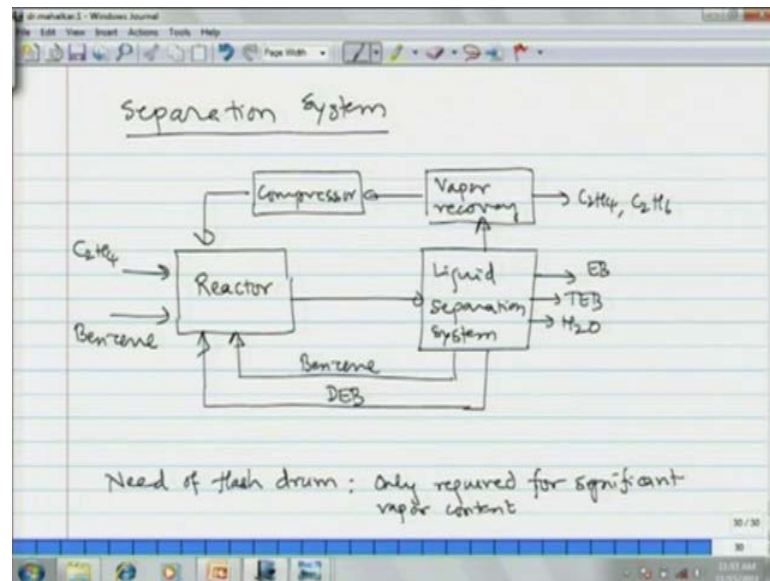 dr.mahalkar.1 - Windows Journal
File Edit View Insert Actions Tools Help
Page Width
Separation System
Compressor
Vapor
recovery
C2H4, C2H6
C2H4
Benzene
Reactor
Liquid
separation
system
EB
TEB
H2O
Benzene
DEB
Need of flash drum : Only required for significant
vapor content
30 / 30
30
11:53 AM